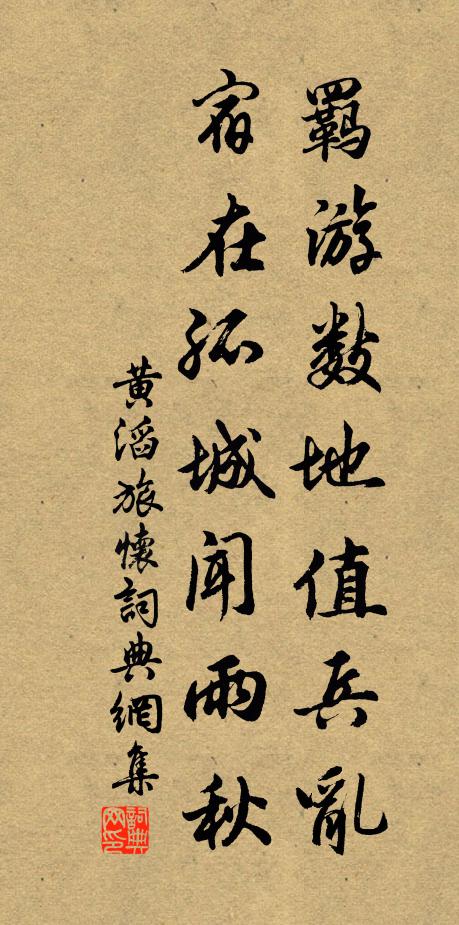 羈游數地值兵亂
宿在孤城聞雨秋
黃滔旅懷詞典網集
詞典網印